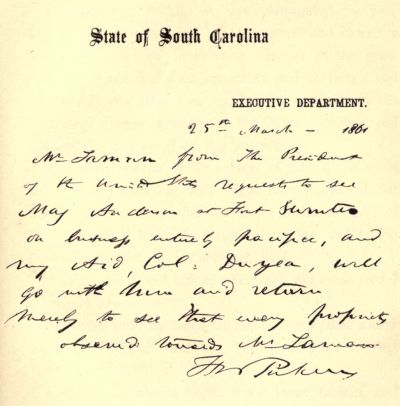 State of South Carolina
EXECUTIVE DEPARTMENT.
25th March - 1861
Mr Lamon from The President
of the United States requests to see
Maj Anderson at Fort Sumter
on business entirely pacific, and
my Aid, Col: Duryea, will
go with him and return
merely to see that every propriety
observed towards Mr Lamon
F W Pickens